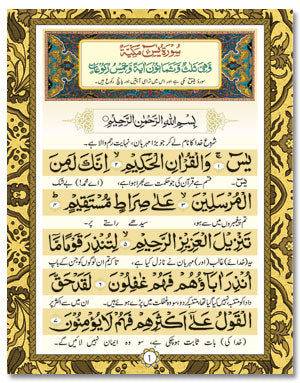 سورة يس مكية
وهي ثلث وثمانون آية وخمس ركوعات
سورۂ یٰسٓ مکی ہے اور اس میں تراسی آیتیں اور پانچ رکوع ہیں۔
بِسْمِ اللهِ الرَّحْمٰنِ الرَّحِيْمِ
شروع خدا کا نام لے کر جو بڑا مہربان، نہایت رحم والا ہے۔
يٰسٓ ۝۱ وَالْقُرْاٰنِ الْحَكِيْمِ ۝۲ اِنَّكَ لَمِنَ
یٰس۔ قسم ہے قرآن کی جو حکمت سے بھرا ہوا ہے، (اے محمد!) بے شک
الْمُرْسَلِيْنَ ۝۳ عَلٰى صِرَاطٍ مُّسْتَقِيْمٍ ۝۴
تم پیغمبروں میں سے ہو، سیدھے راستے پر۔
تَنْزِيْلَ الْعَزِيْزِ الرَّحِيْمِ ۝۵ لِتُنْذِرَ قَوْمًا مَّآ
(یہ خدائے) غالب (اور) مہربان نے نازل کیا ہے، تاکہ تم ان لوگوں کو جن کے باپ
اُنْذِرَ اٰبَآؤُهُمْ فَهُمْ غٰفِلُوْنَ ۝۶ لَقَدْ حَقَّ
دادا کو متنبہ نہیں کیا گیا تھا، متنبہ کردو، وہ غفلت میں پڑے ہوئے ہیں۔ ان میں سے اکثر پر
الْقَوْلُ عَلٰٓى اَكْثَرِهِمْ فَهُمْ لَا يُؤْمِنُوْنَ ۝۷
(خدا کی) بات ثابت ہوچکی ہے، سو وہ ایمان نہیں لائیں گے۔
1